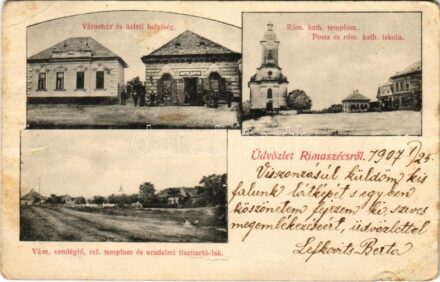 Városház és üzleti helyiség.
Róm. kath. templom.
Posta és róm. kath. iskola.
Üdvözlet Rimaszécsről. 1907 I/25.
Viszonzásúl küldöm kis
falunk látképét s egyben
köszönetem fejezem ki, szives
megemlékezéseért, üdvözlettel
Lefkovits Berta
Vám, vendéglő, ref. templom és uradalmi tiszttartó-lak.